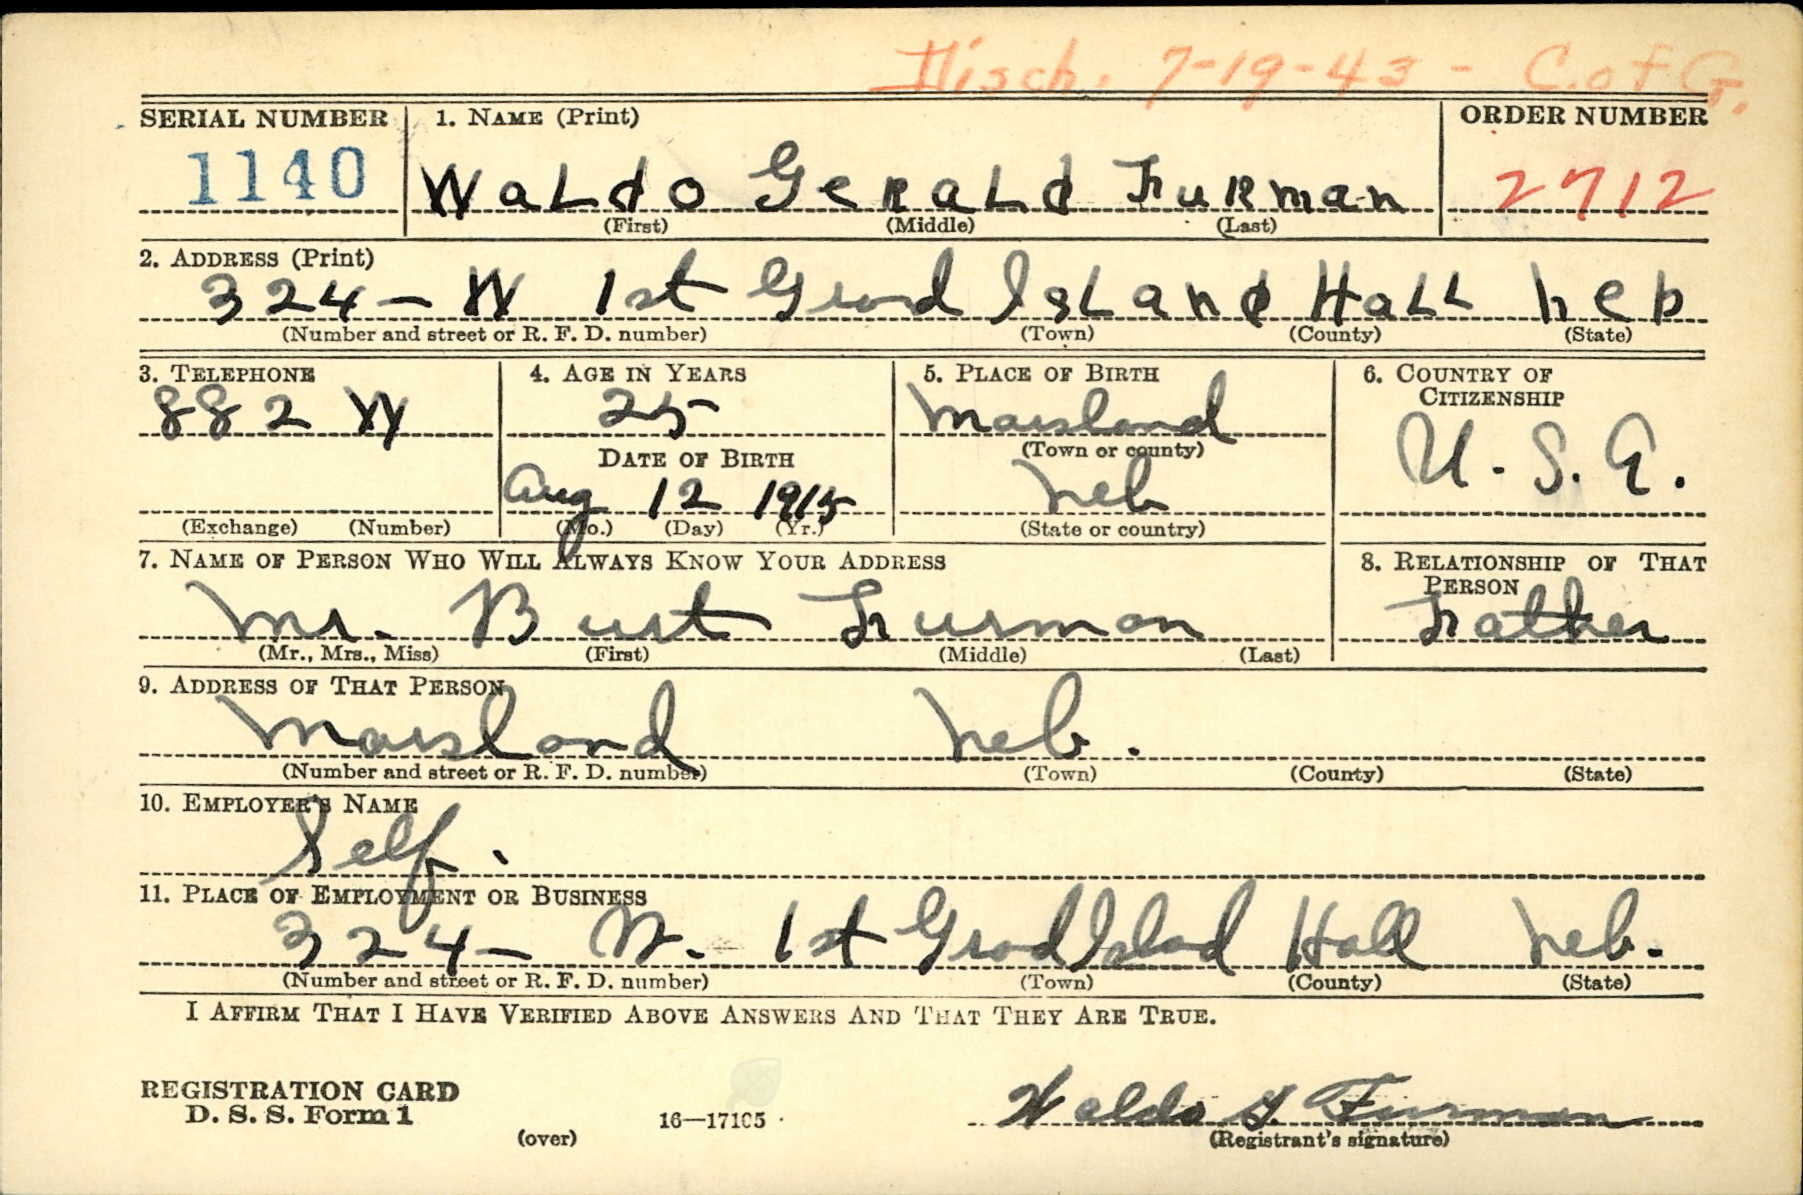 Disch. 7-19-43 - C. of G.
SERIAL NUMBER 1. NAME (Print) ORDER NUMBER
1140 Waldo Gerald Furman 2712
(First) (Middle) (Last)
2. ADDRESS (Print)
324 - W 1st Grand Island Hall Neb
(Number and street or R. F. D. number) (Town) (County) (State)
3. TELEPHONE 4. AGE IN YEARS 5. PLACE OF BIRTH 6. COUNTRY OF CITIZENSHIP
882 W 25 Marsland U. S. A.
(Town or county)
DATE OF BIRTH
Aug 12 1915 Neb
(Exchange) (Number) (Mo.) (Day) (Yr.) (State or country)
7. NAME OF PERSON WHO WILL ALWAYS KNOW YOUR ADDRESS 8. RELATIONSHIP OF THAT PERSON
Mr. Burt Furman Father
(Mr., Mrs., Miss) (First) (Middle) (Last)
9. ADDRESS OF THAT PERSON
Marsland Neb.
(Number and street or R. F. D. number) (Town) (County) (State)
10. EMPLOYER'S NAME
Self.
11. PLACE OF EMPLOYMENT OR BUSINESS
324 - W. 1st Grand Island Hall Neb.
(Number and street or R. F. D. number) (Town) (County) (State)
I AFFIRM THAT I HAVE VERIFIED ABOVE ANSWERS AND THAT THEY ARE TRUE.
REGISTRATION CARD
D. S. S. Form 1 16—17105 Waldo G. Furman
(over) (Registrant's signature)